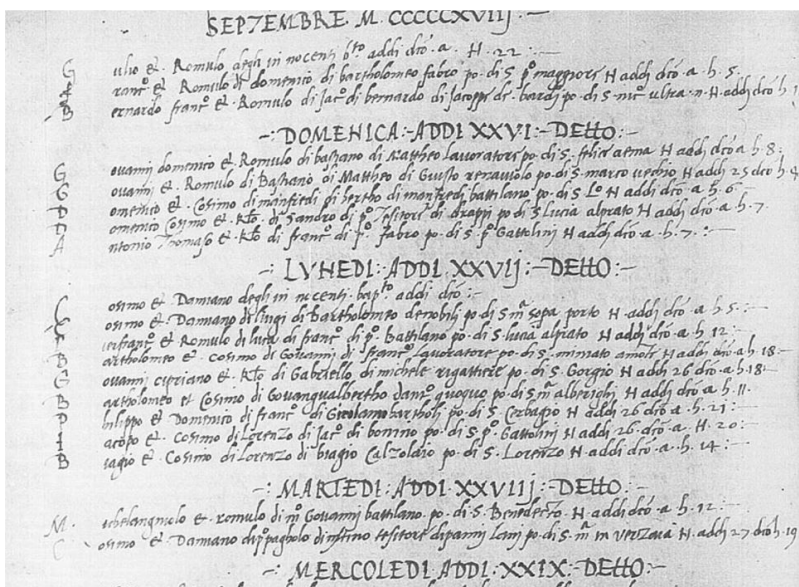 SEPTEMBRE M CCCCCXVIIJ
G ulio et Romulo degli in nocenti b.to addi dco a H 22
F ranc.o et Romulo di domenico di bartholomeo fabro po di S p.o maggiore N addi dco a h 5
B ernardo franc.o et Romulo di Jac.o di bernardo di Jacopo de bardi po di S nic.o ultra N addi dco h
DOMENICA ADDI XXVI DETTO
G ovanni domenico et Romulo di bastiano di Mattheo Lavoratore po di S felice aema N addi dco a h 8
G ovanni et Romulo di Bastiano di Mattheo di Giusto renaiuolo po di S marco vechio N addi 25 dco h
D omenico et Cosimo di manfredi di bertho di manfredi battilano po di S L.o N addi dco a h 6
D omenico Cosimo et di Sandro di p.o Tesitore di drappi po di S Lucia alprato N addi dco a h 7
A ntonio Thomaso et di franc.o di fabro po di S p.o Gattolini N addi dco a h 7
LUNEDI ADDI XXVIJ DETTO
C osimo et Damiano degli in nocenti bap.to addi dco
C osimo et Damiano di Luigi di Bartholomeo de nobili po di S sopa porto N addi dco a h 5
franc.o et Romulo di luca di franc.o di p.o Battilano po di S lucia alprato N addi dco a h 12
B artholomeo et Cosimo di Govanni di franc.o Lavoratore po di S miniato N addi dco a h 18
G ovanni cipriano et di Gabriello di michele rigattiere po di S Gorgio N addi 26 dco h 18
B artholomeo et Cosimo di Govangualbertho po di S alberighi N addi dco a h 11
hilippo et Domenico di franc.o di Girolamo bartholi po di S N addi 26 dco a h 21
J acopo et Cosimo di Lorenzo di Jac.o di bonino po di S p.o Gattolini N addi 26 dco a H 20
B iagio et Cosimo di Lorenzo di biagio Calzolaio po di S Lorenzo N addi dco a h 14
MARTEDI ADDI XXVIIJ DETTO
M ichelangnolo et romulo di Govanni battilano po di S Benedecto N addi dco a h 12
C osimo et Damiano di tesitore di panni Lani po di S in verzaia N addi 27 dco h 19
MERCOLEDI ADDI XXIX DETTO